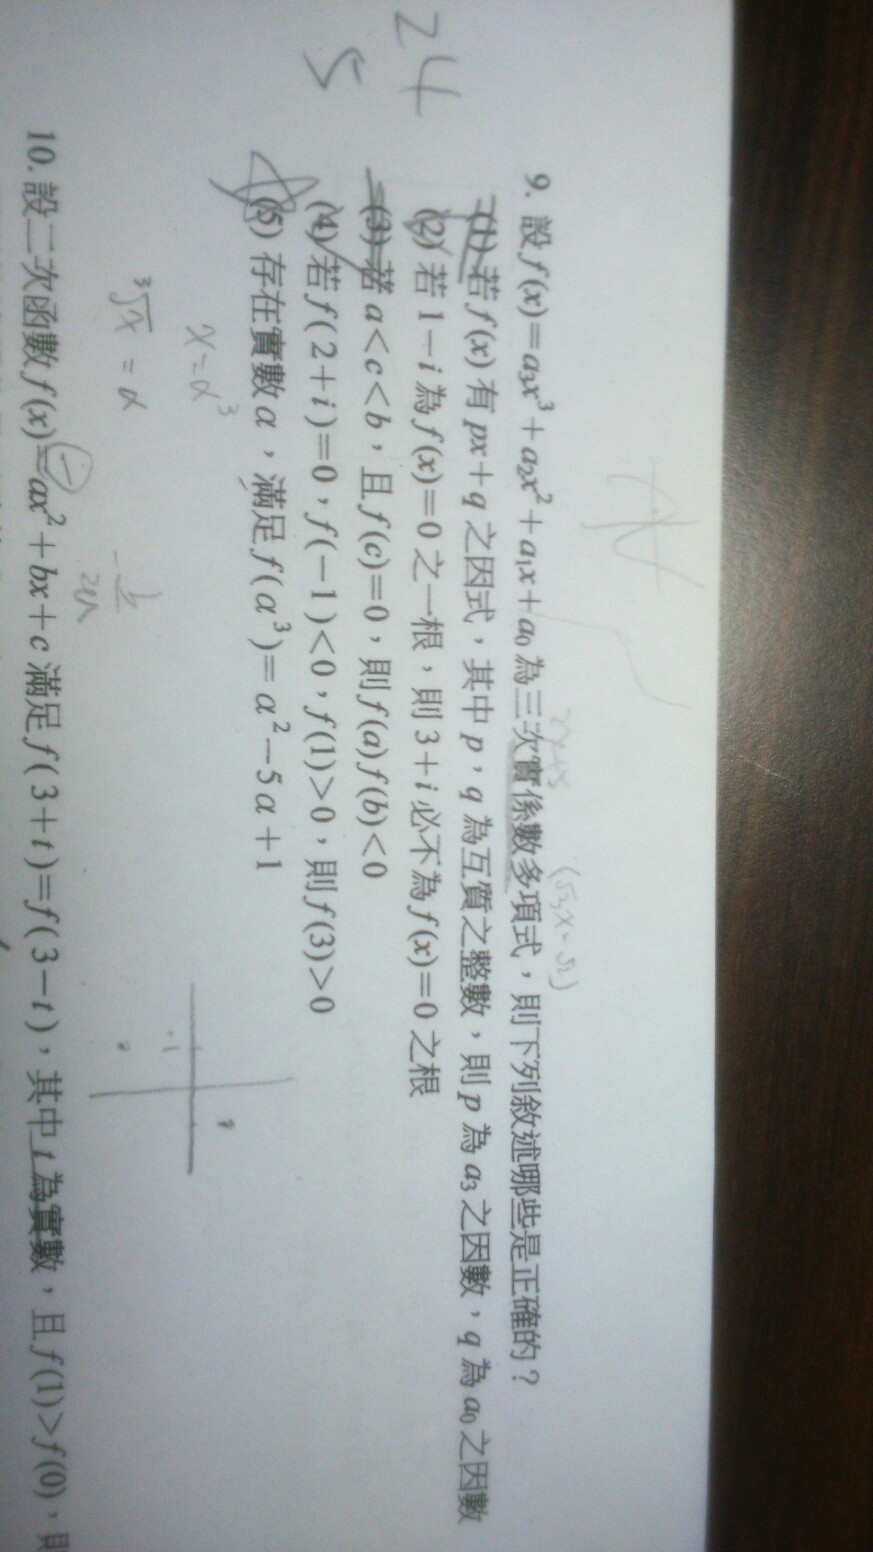 24
5
9. 設f(x)=a₃x³+a₂x²+a₁x+a₀為三次實係數多項式，則下列敘述哪些是正確的？
(1)若f(x)有px+q之因式，其中p，q為互質之整數，則p為a₃之因數，q為a₀之因數
(2)若1−i為f(x)=0之一根，則3+i必不為f(x)=0之根
(3)若a<c<b，且f(c)=0，則f(a)f(b)<0
(4)若f(2+i)=0，f(−1)<0，f(1)>0，則f(3)>0
(5)存在實數α，滿足f(α³)=α²−5α+1
x=α³
³√x=α
-1
10. 設二次函數f(x)=ax²+bx+c滿足f(3+t)=f(3−t)，其中t為實數，且f(1)>f(0)，